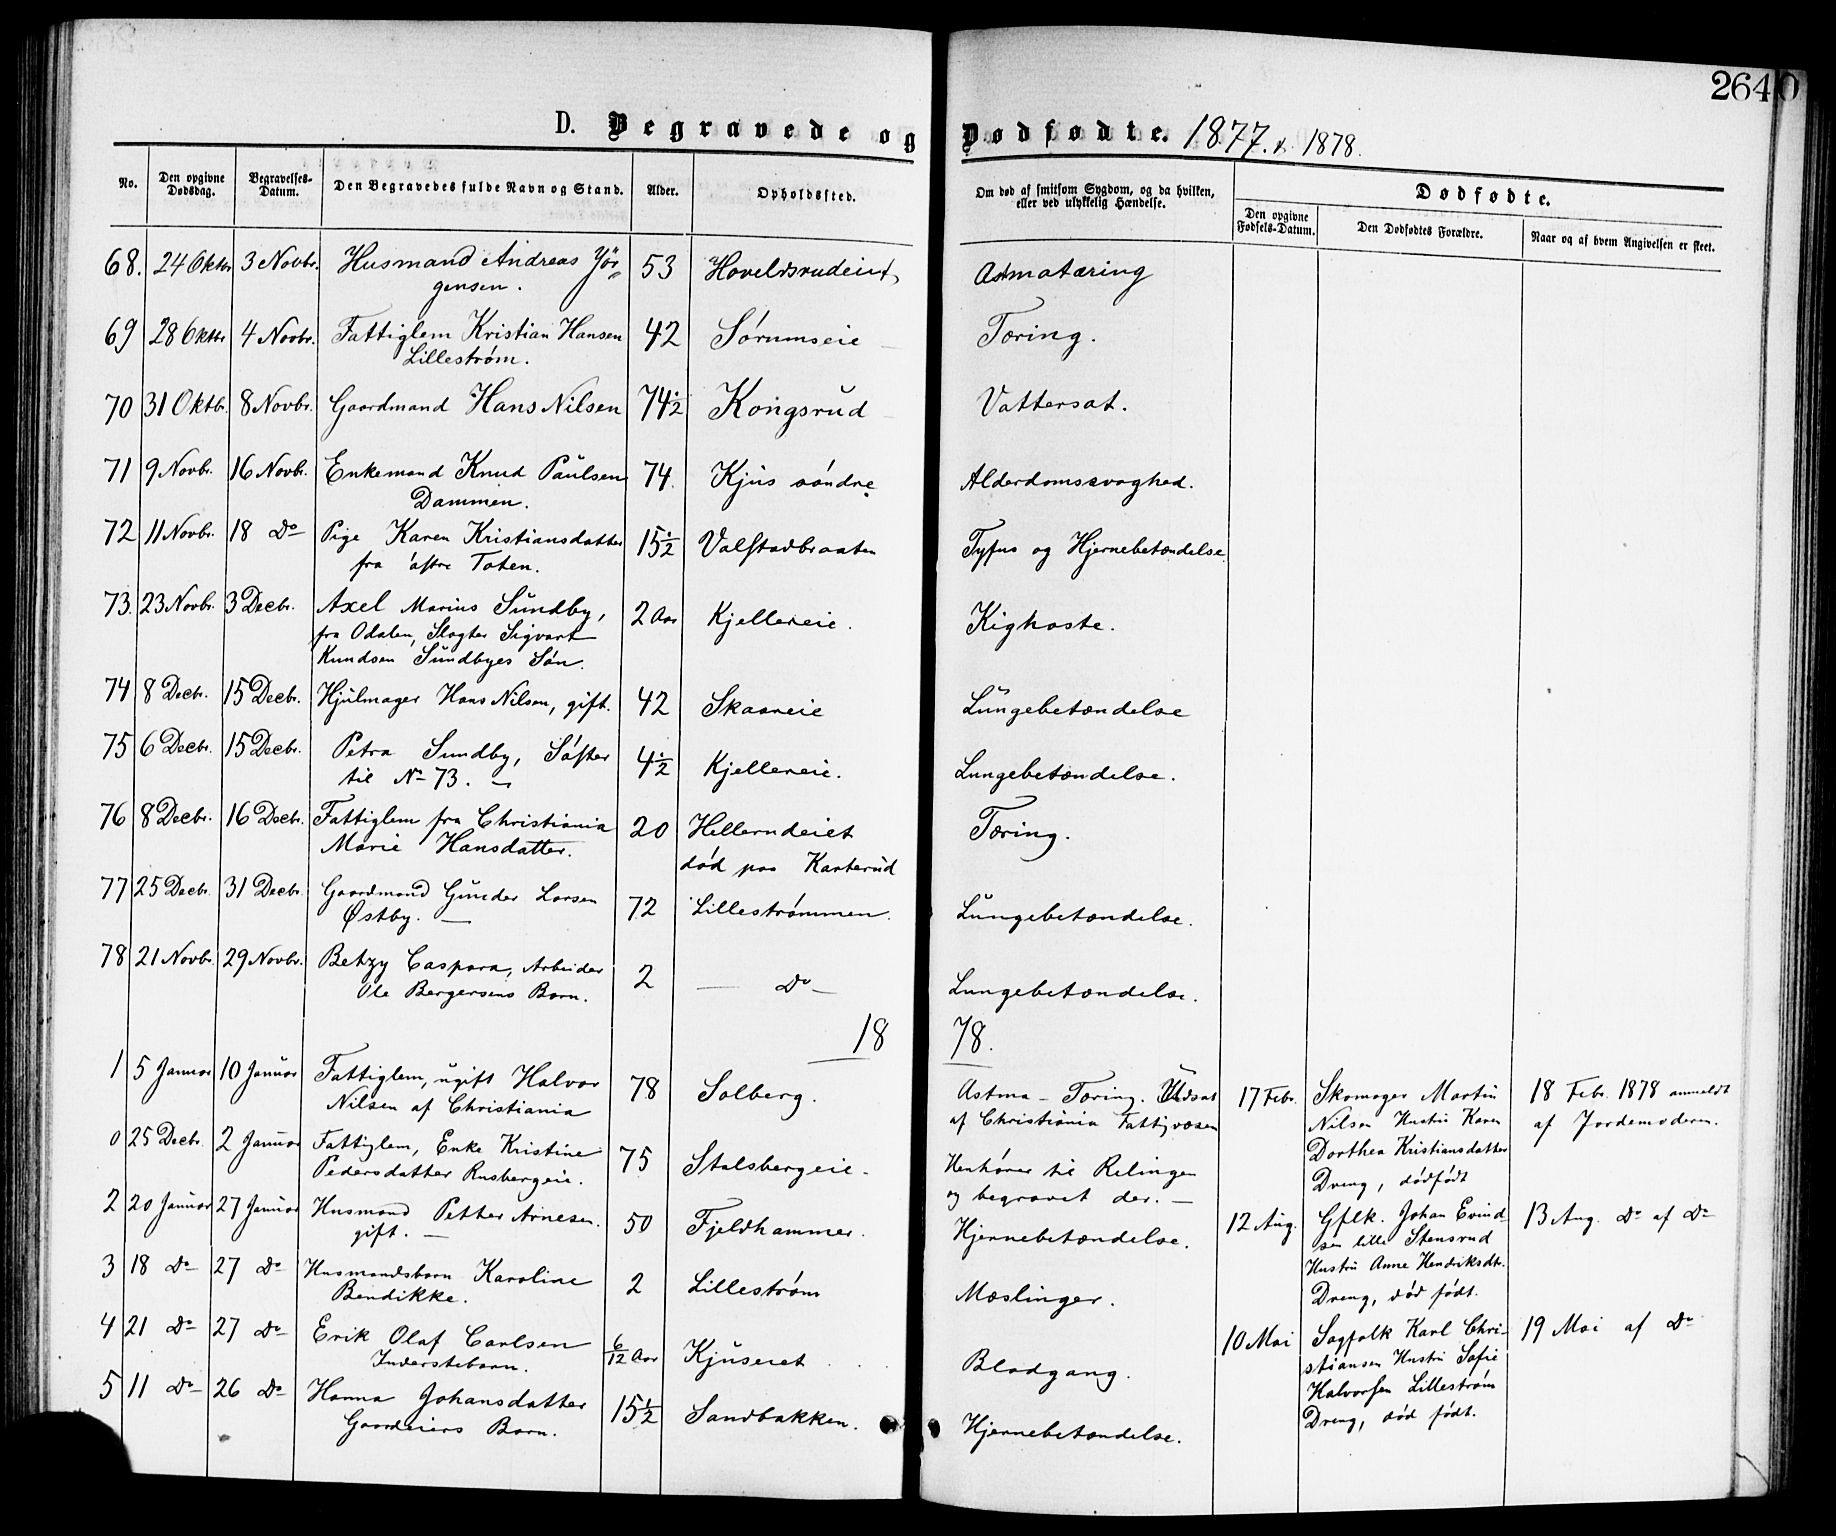 264
D. Begravede og Dødfødte. 1877. & 1878.
No. Den opgivne Dødsdag. Begravelses-Datum. Den Begravedes fulde Navn og Stand. Alder. Opholdssted. Om død af smitsom Sygdom, og da hvilken, eller ved ulykkelig Hændelse. Dødfødte.
Den opgivne Fødsels-Datum. Den Dødfødtes Forældre. Naar og af hvem Angivelsen er skeet.
68. 24 Oktbr 3 Novbr. Husmand Andreas Jör= 53 Hoveldsrudeiet Astmatæring
gensen.
69 28 Oktbr 4 Novbr. Fattiglem Kristian Hansen 42 Sørumseie Tæring.
Lillestrøm.
70 31 Oktb. 8 Novbr. Gaardmand Hans Nilsen 74½ Kongsrud Vattersot.
71 9 Novbr. 16 Novbr. Enkemand Knud Paulsen 74. Kjus söndre Alderdomssvaghed.
Dammen.
72 11 Novbr. 18 Do Pige Karen Kristiansdatter 15½ Valstadbraaten Tyfus og Hjernebetændelse
fra östre Toten.
73. 23 Novbr. 3 Decbr. Axel Marius Sundby, 2 Aar Kjellereie. Kighoste.
fra Odalen, Slagter Sigvart
Knudsen Sundbyes Søn.
74 8 Decbr. 15 Decbr. Hjulmager Hans Nilsen, gift. 42 Skaareie Lungebetændelse
75 6 Decbr. 15 Decbr. Petra Sundby, Søster 4½ Kjellereie. Lungebetændelse.
til No 73. —
76 8 Decbr. 16 Decbr. Fattiglem fra Christiania 20 Hellerudeiet Tæring.
Marie Hansdatter. død paa Karterud
77 25 Decbr. 31 Decbr. Gaardmand Gunder Larsen 72 Lillestrømmen. Lungebetændelse.
Østby. —
78 21 Novbr. 29 Novbr. Betzy Caspara, Arbeider 2 — Do — Lungebetændelse.
Ole Bergersens Barn.
18 78.
1 5 Januar 10 Januar Fattiglem, ugift Halvor 78 Solberg. Astma - Tæring. Udsat 17 Febr. Skomager Martin 18 Febr. 1878 anmeldt
Nilsen af Christiania af Christiania Fattigvæsen Nilsen Hustru Karen af Jordemoderen.
0 25 Decbr. 2 Januar Fattiglem, Enke Kristine 75 Stalsbergeie. Henhører til Relingen Dorthea Kristiansdatter
Pedersdatter Rusbergeie. og begravet der. — Dreng, dødfødt
2 20 Januar 27 Januar Husmand Petter Arnesen. 50 Fjeldhammer. Hjernebetændelse. 12 Aug. Gflk. Johan Evind- 13 Aug. Do af Do
gift. — sen lille Stensrud
3 18 Do 27 Do Husmandsbarn Karoline 2 Lillestrøm Mæslinger. Hustru Anne Hendriksdtr.
Bendikke. Dreng, død født.
4 21 Do 27 Do Erik Olaf Carlsen 6/12 Aar Kjuseiet Blodgang. 10 Mai Sagfolk Karl Chri- 19 Mai af Do
Inderstebarn. stiansen Hustru Sofie
5 11 Do 26 Do Hanna Johansdatter 15½ Sandbakken. Hjernebetændelse. Halvorsen Lillestrøm
Gaardeiers Barn. Dreng, død født.